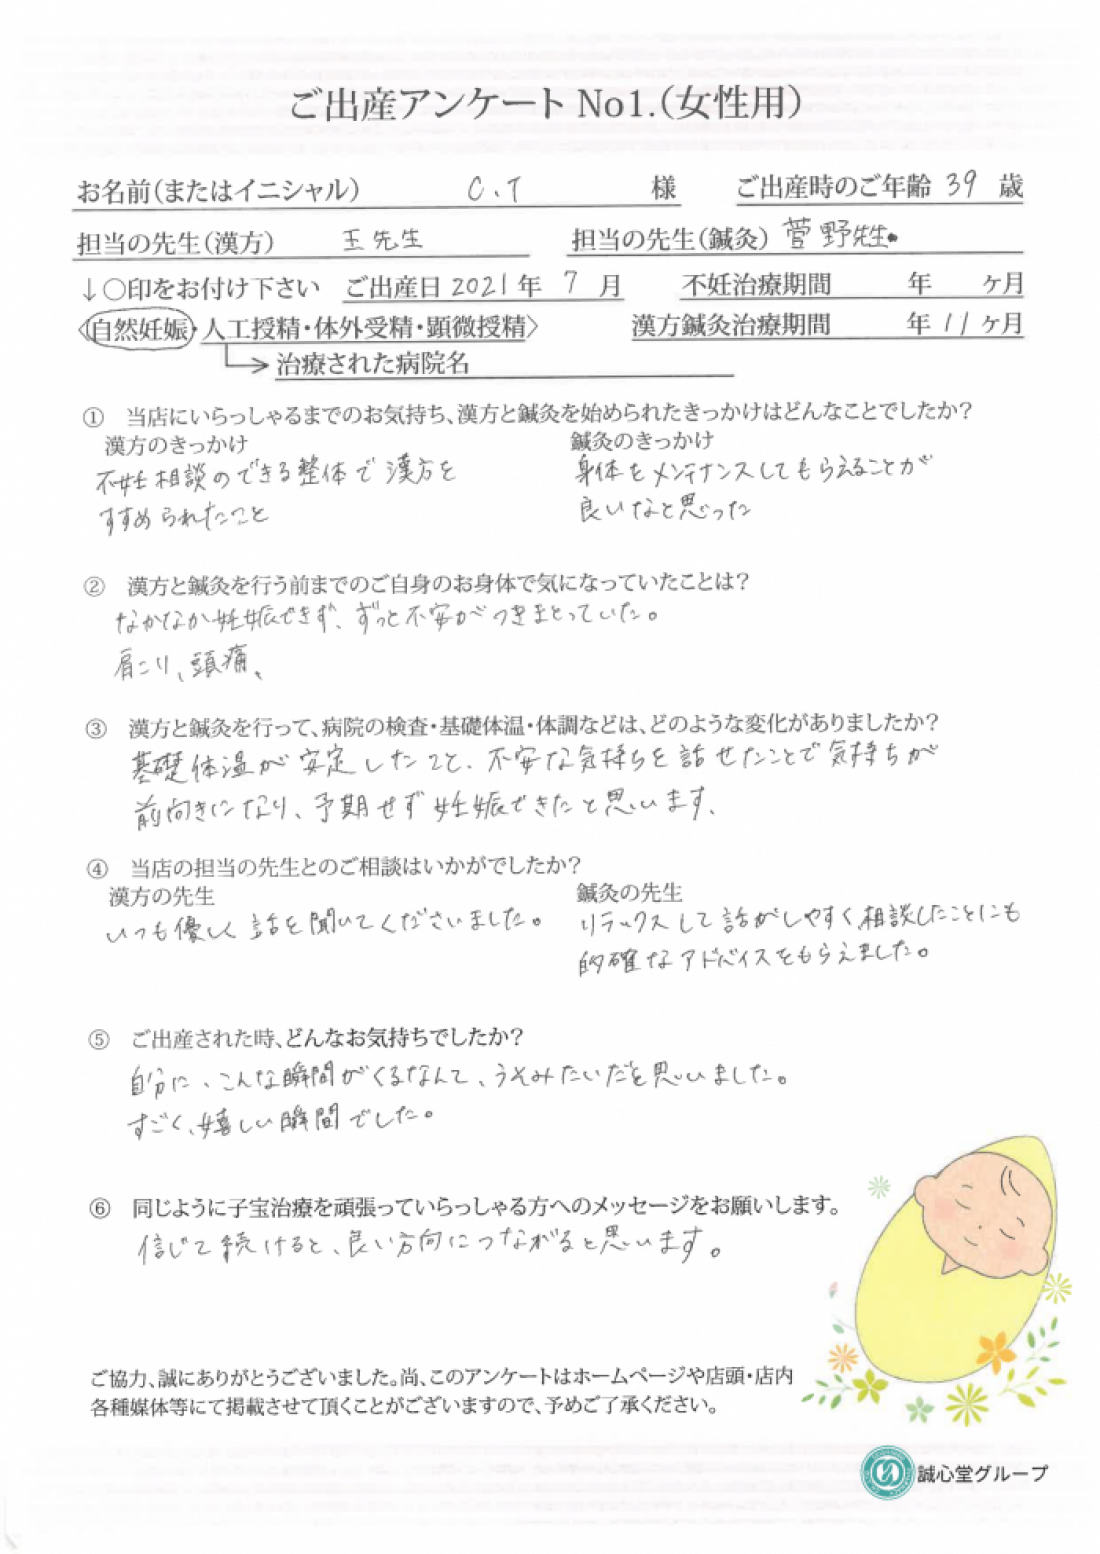 ご出産アンケート No1.(女性用)
お名前(またはイニシャル) C.T 様 ご出産時のご年齢 39 歳
担当の先生(漢方) 王先生 担当の先生(鍼灸) 菅野先生
↓○印をお付け下さい ご出産日 2021年 7月 不妊治療期間 年 ヶ月
〈自然妊娠・人工授精・体外受精・顕微授精〉 漢方鍼灸治療期間 年 11ヶ月
治療された病院名
① 当店にいらっしゃるまでのお気持ち、漢方と鍼灸を始められたきっかけはどんなことでしたか?
漢方のきっかけ
不妊相談のできる整体で漢方を
すすめられたこと
鍼灸のきっかけ
身体をメンテナンスしてもらえることが
良いなと思った
② 漢方と鍼灸を行う前までのご自身のお身体で気になっていたことは?
なかなか妊娠できず、ずっと不安がつきまとっていた。
肩こり、頭痛、
③ 漢方と鍼灸を行って、病院の検査・基礎体温・体調などは、どのような変化がありましたか?
基礎体温が安定したこと、不安な気持ちを話せたことで気持ちが
前向きになり、予期せず妊娠できたと思います、
④ 当店の担当の先生とのご相談はいかがでしたか?
漢方の先生
いつも優しく話を聞いてくださいました。
鍼灸の先生
リラックスして話がしやすく、相談したことにも
的確なアドバイスをもらえました。
⑤ ご出産された時、どんなお気持ちでしたか?
自分に、こんな瞬間がくるなんて、うそみたいだと思いました。
すごく、嬉しい瞬間でした。
⑥ 同じように子宝治療を頑張っていらっしゃる方へのメッセージをお願いします。
信じて続けると、良い方向につながると思います。
ご協力、誠にありがとうございました。尚、このアンケートはホームページや店頭・店内
各種媒体等にて掲載させて頂くことがございますので、予めご了承ください。
誠心堂グループ